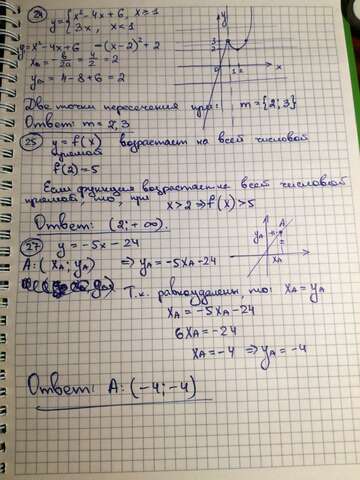 24 y = { x² - 4x + 6, x ≥ 1
3x, x < 1
y = x² - 4x + 6 = (x - 2)² + 2
x₀ = -b/2a = 4/2 = 2
y₀ = 4 - 8 + 6 = 2
Две точки пересечения при: m = {2; 3}
Ответ: m = 2; 3
25 y = f(x) возрастает на всей числовой
прямой
f(2) = 5
Если функция возрастает на всей числовой
прямой, то, при x > 2 ⇒ f(x) > 5
Ответ: (2; +∞).
27 y = -5x - 24
A: (xA; yA) ⇒ yA = -5xA - 24
Т.к. равноудалены, то: xA = yA
xA = -5xA - 24
6xA = -24
xA = -4 ⇒ yA = -4
Ответ: A: (-4; -4)